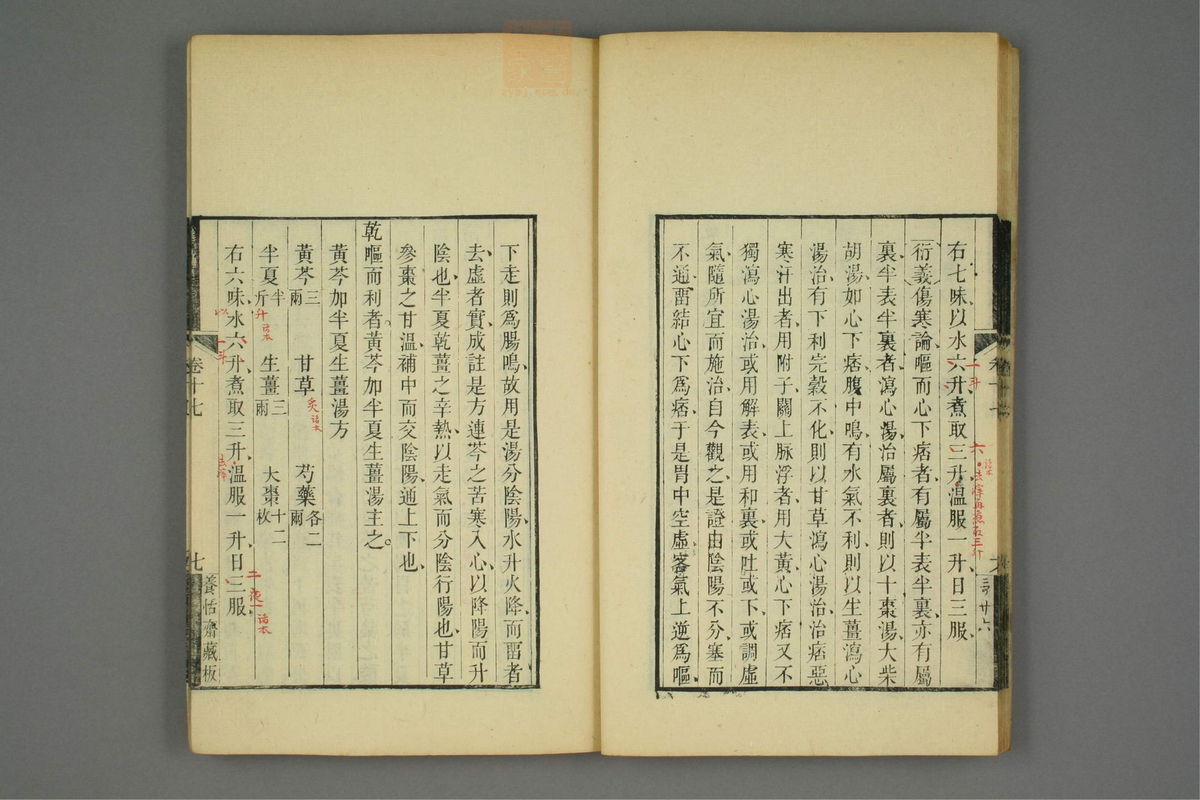 右七味以水六升煮取三升溫服一升日三服
衍義傷寒論嘔而心下痞者有屬半表半裏亦有屬
裏半表半裏者瀉心湯治屬裏者則以十棗湯大柴
胡湯如心下痞腹中鳴有水氣不利則以生薑瀉心
湯治有下利完穀不化則以甘草瀉心湯治治痞惡
寒汗出者用附子關上脉浮者用大黃心下痞又不
獨瀉心湯治或用解表或用和裏或吐或下或調虛
氣隨所宜而施治自今觀之是證由陰陽不分塞而
不通畱結心下為痞于是胃中空虛客氣上逆為嘔
下走則為腸鳴故用是湯分陰陽水升火降而畱者
去虛者實成註是方連芩之苦寒入心以降陽而升
陰也半夏乾薑之辛熱以走氣而分陰行陽也甘草
參棗之甘溫補中而交陰陽通上下也
乾嘔而利者黃芩加半夏生薑湯主之
黃芩加半夏生薑湯方
黃芩三兩 甘草炙 芍藥各二兩
半夏半斤 生薑三兩 大棗十二枚
右六味水六升煮取三升溫服一升日三服
卷十七
七
養恬齋藏板
一斗
六
去滓再煎取三升
升
以
一斗
去滓
二夜一